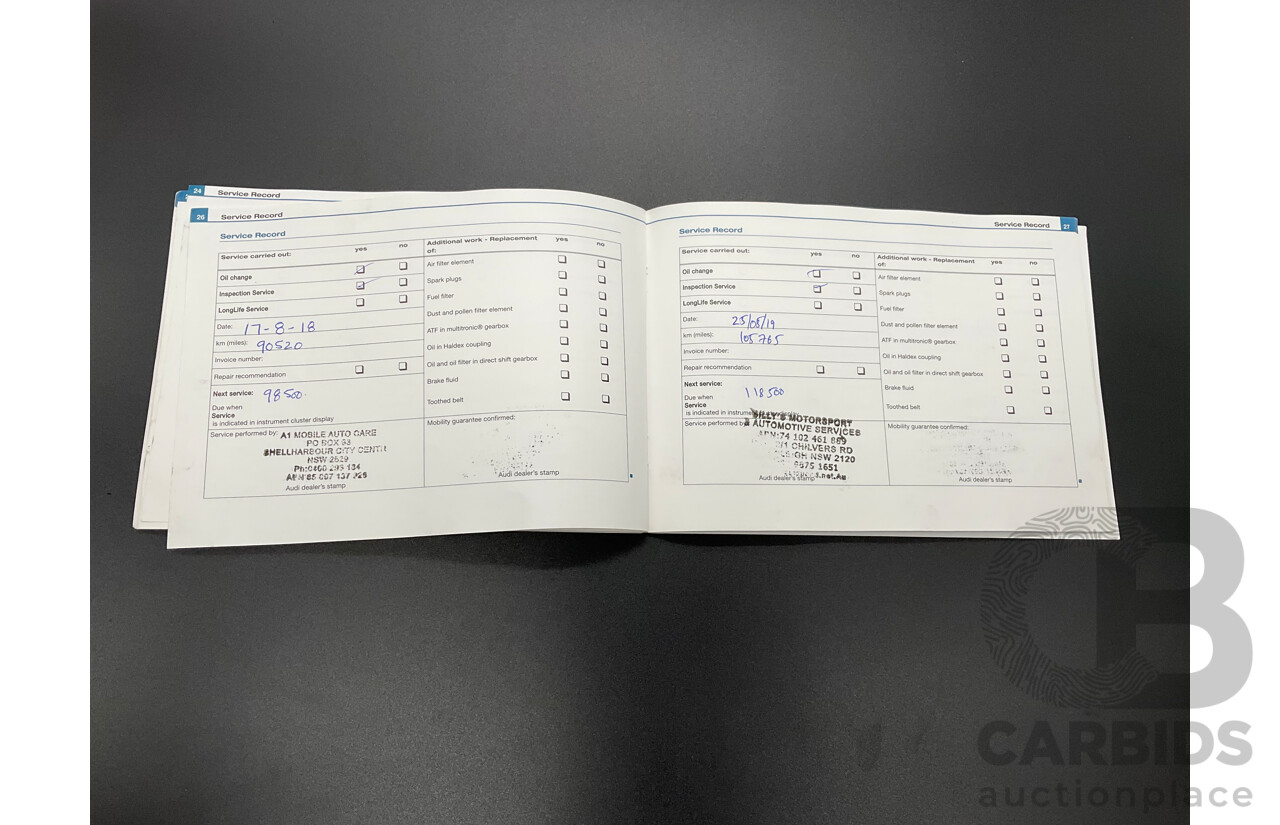 24 Service Record
26 Service Record
Service Record
Service carried out: yes no
Oil change
Inspection Service
LongLife Service
Date: 17-8-18
km (miles): 90520
Invoice number:
Repair recommendation
Next service: 98500
Due when
Service
is indicated in instrument cluster display
Service performed by: A1 MOBILE AUTO CARE
PO BOX 53
SHELLHARBOUR CITY CENTR
NSW 2529
Audi dealer's stamp
Additional work - Replacement of: yes no
Air filter element
Spark plugs
Fuel filter
Dust and pollen filter element
ATF in multitronic® gearbox
Oil in Haldex coupling
Oil and oil filter in direct shift gearbox
Brake fluid
Toothed belt
Mobility guarantee confirmed:
Audi dealer's stamp
Service Record 27
Service Record
Service carried out: yes no
Oil change
Inspection Service
LongLife Service
Date: 25/08/19
km (miles): 105765
Invoice number:
Repair recommendation
Next service: 118500
Due when
Service
is indicated in
Service performed
BILLY'S MOTORSPORT
& AUTOMOTIVE SERVICES
CHILVERS RD
NSW 2120
9875 1651
Audi dealer's stamp
Additional work - Replacement of: yes no
Air filter element
Spark plugs
Fuel filter
Dust and pollen filter element
ATF in multitronic® gearbox
Oil in Haldex coupling
Oil and oil filter in direct shift gearbox
Brake fluid
Toothed belt
Mobility guarantee confirmed:
Audi dealer's stamp
CARBIDS
auctionplace